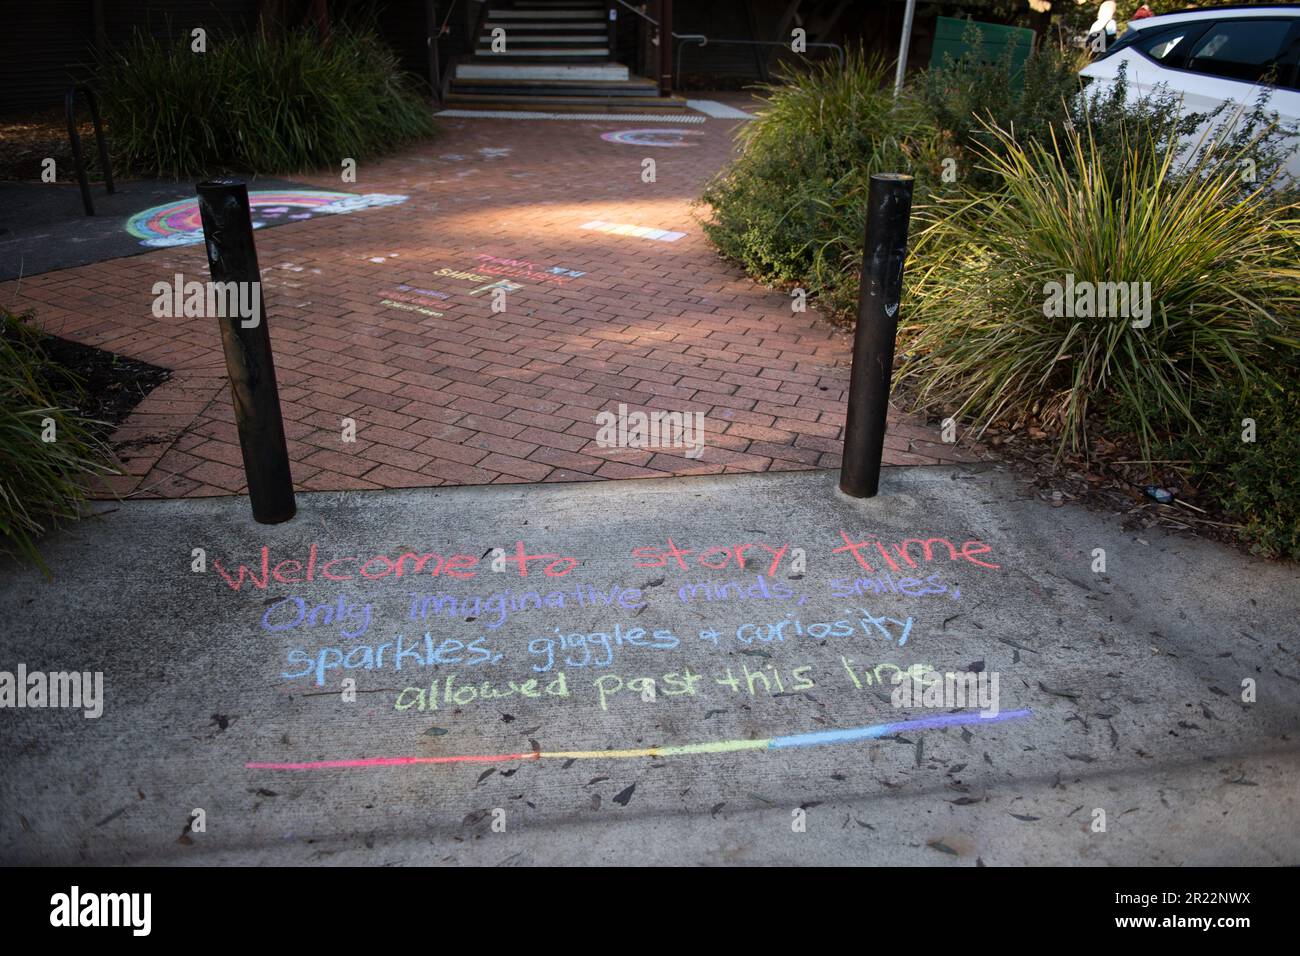 THANK
SHINE
Welcome to story time
Only imaginative minds, smiles,
sparkles, giggles + curiosity
allowed past this line.
alamy
Image ID: 2R22NWX
www.alamy.com